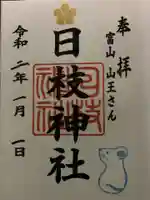 奉拝
富山 山王さん
日枝神社
令和二年一月一日